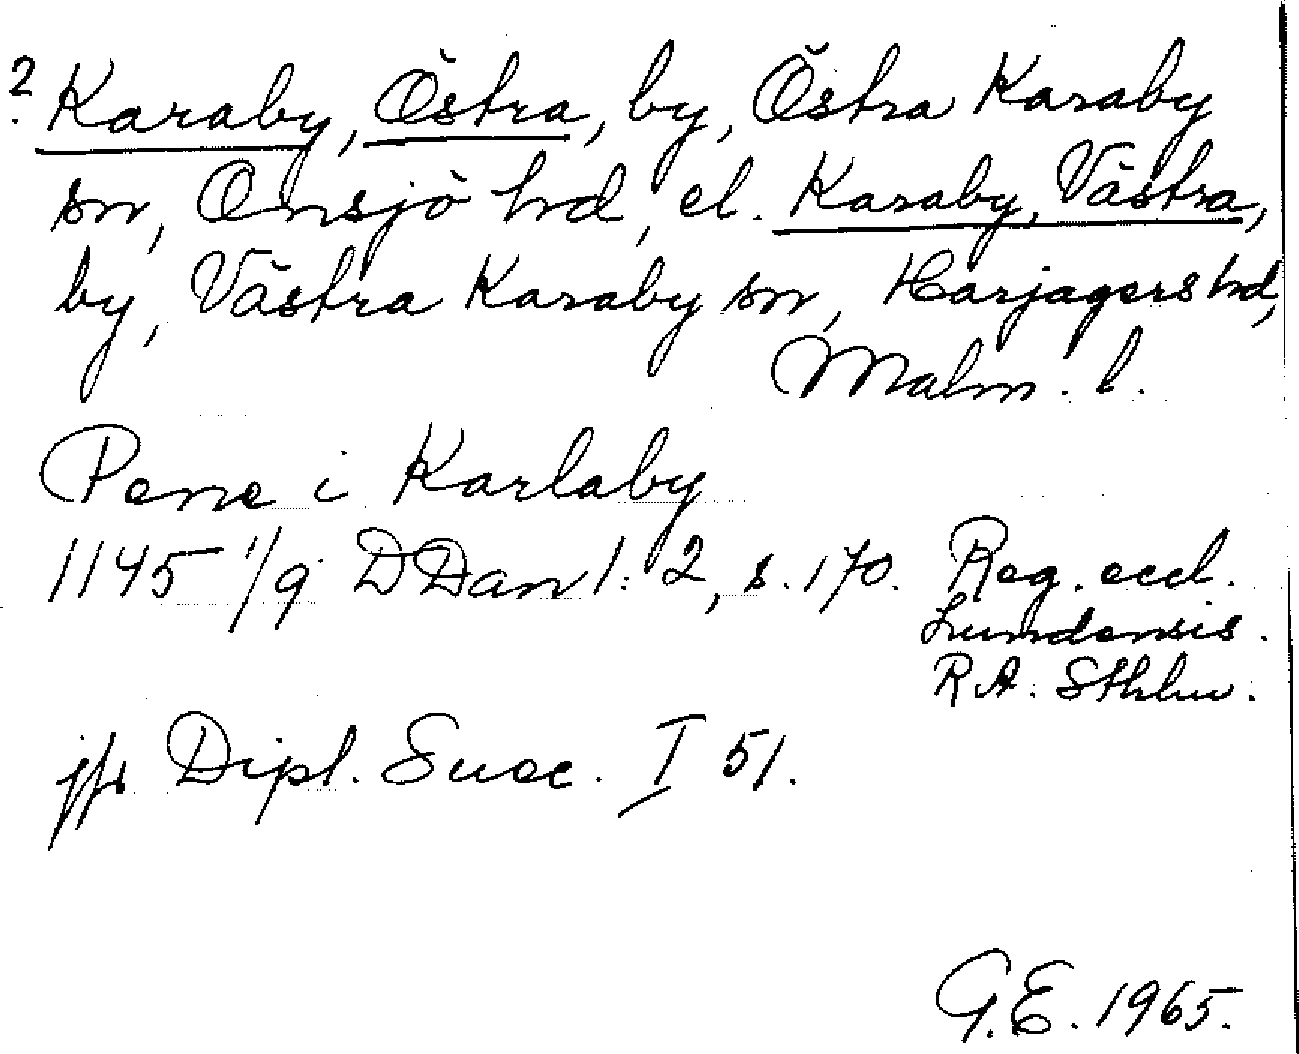 ? Karaby, Östra, by, Östra Karaby
sn, Onsjö hd, el. Karaby, Västra,
by, Västra Karaby sn, Harjagers hd,
Malm. l.
Pene i Karlaby
1145 1/9 DDan 1:2, s. 170. Reg. eccl.
Lundensis.
RA. Sthlm.
jfr Dipl. Suec. I 51.
G.E. 1965.